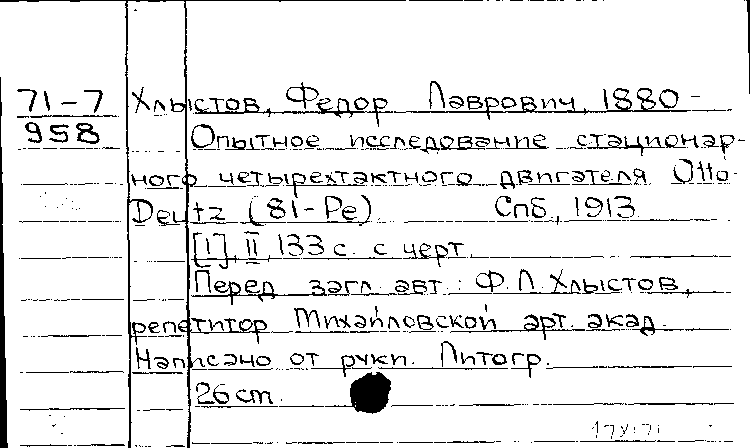 71-7 Хлыстов, Федор Лаврович, 1880-
958 Опытное исследование стационар-
ного четырехтактного двигателя Otto-
Deutz (81-Pe). Спб, 1913
[1], II, 133 с. с черт.
Перед загл. авт.: Ф.Л. Хлыстов,
репетитор Михайловской арт. акад.
Написано от руки. Литогр.
26 cm.